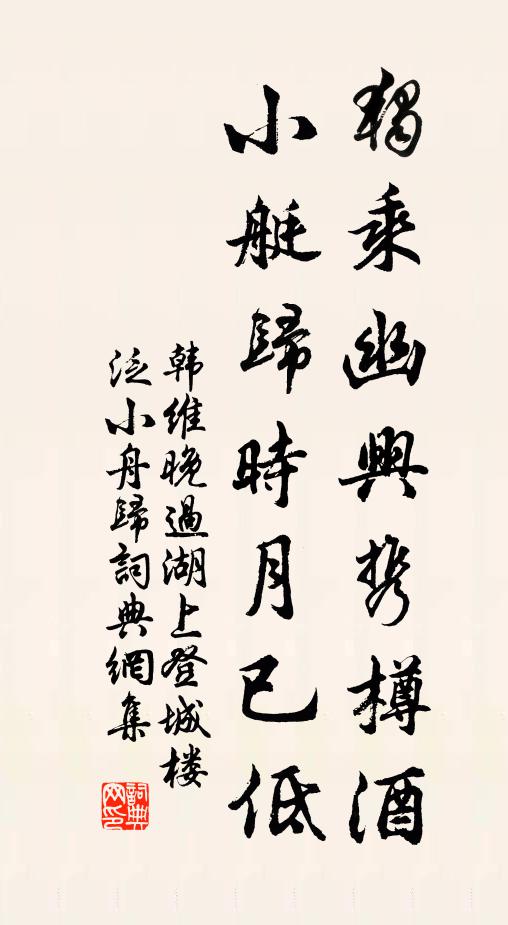 獨乘幽興携樽酒
小艇歸時月已低
韩维晚過湖上登城楼
泛小舟歸詞典網集
詞典网印